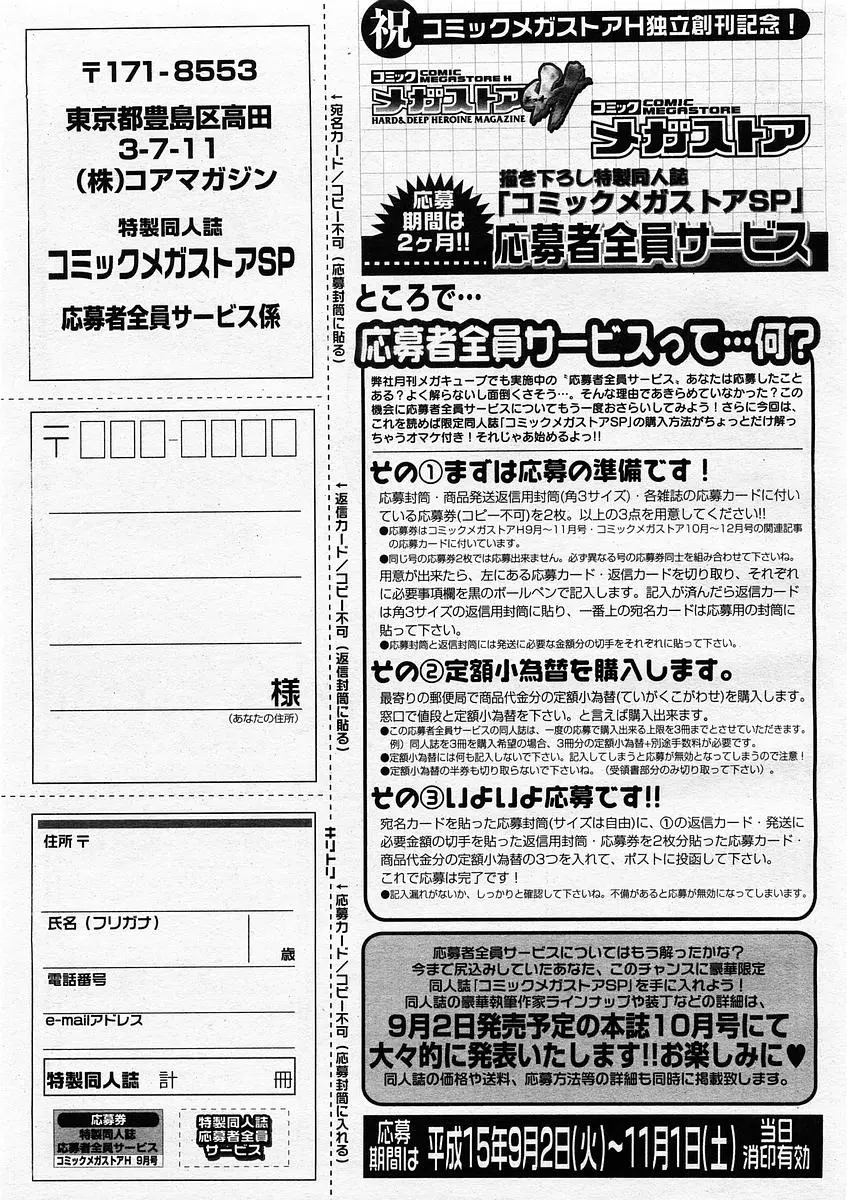 祝 コミックメガストアH独立創刊記念！
コミック COMIC MEGASTORE H
メガストアH
HARD&DEEP HEROINE MAGAZINE
コミック COMIC MEGASTORE
メガストア
応募
期間は
2ヶ月!!
描き下ろし特製同人誌
「コミックメガストアSP」
応募者全員サービス
ところで…
応募者全員サービスって…何？
弊社月刊メガキューブでも実施中の〝応募者全員サービス〟あなたは応募したこと
ある？よく解らないし面倒くさそう…。そんな理由であきらめていなかった？この
機会に応募者全員サービスについてもう一度おさらいしてみよう！さらに今回は、
これを読めば限定同人誌「コミックメガストアSP」の購入方法がちょっとだけ解っ
ちゃうオマケ付き！それじゃあ始めるよっ!!
その①まずは応募の準備です！
応募封筒・商品発送返信用封筒(角3サイズ)・各雑誌の応募カードに付い
ている応募券(コピー不可)を2枚。以上の3点を用意してください!!
●応募券はコミックメガストアH9月～11月号・コミックメガストア10月～12月号の関連記事
の応募カードに付いています。
●同じ号の応募券2枚では応募出来ません。必ず異なる号の応募券同士を組み合わせて下さいね。
用意が出来たら、左にある応募カード・返信カードを切り取り、それぞれ
に必要事項欄を黒のボールペンで記入します。記入が済んだら返信カード
は角3サイズの返信用封筒に貼り、一番上の宛名カードは応募用の封筒に
貼って下さい。
●応募封筒と返信封筒には発送に必要な金額分の切手をそれぞれに貼って下さい。
その②定額小為替を購入します。
最寄りの郵便局で商品代金分の定額小為替(ていがくこがわせ)を購入します。
窓口で値段と定額小為替を下さい。と言えば購入出来ます。
●この応募者全員サービスの同人誌は、一度の応募で購入出来る上限を3冊までとさせていただきます。
例）同人誌を3冊を購入希望の場合、3冊分の定額小為替+別途手数料が必要です。
●定額小為替には何も記入しないで下さい。記入してしまうと応募が無効となってしまうので注意！
●定額小為替の半券も切り取らないで下さいね。（受領書部分のみ切り取って下さい）。
その③いよいよ応募です!!
宛名カードを貼った応募封筒(サイズは自由)に、①の返信カード・発送に
必要金額の切手を貼った返信用封筒・応募券を2枚分貼った応募カード・
商品代金分の定額小為替の3つを入れて、ポストに投函して下さい。
これで応募は完了です！
●記入漏れがないか、しっかりと確認して下さいね。不備があると応募が無効になってしまいます。
応募者全員サービスについてはもう解ったかな？
今まで尻込みしていたあなた、このチャンスに豪華限定
同人誌「コミックメガストアSP」を手に入れよう！
同人誌の豪華執筆作家ラインナップや装丁などの詳細は、
9月2日発売予定の本誌10月号にて
大々的に発表いたします!!お楽しみに♥
同人誌の価格や送料、応募方法等の詳細も同時に掲載致します。
応募
期間は
平成15年9月2日(火)～11月1日(土)
当日
消印有効
〒171-8553
東京都豊島区高田
3-7-11
(株)コアマガジン
特製同人誌
コミックメガストアSP
応募者全員サービス係
←宛名カード／コピー不可（応募封筒に貼る）
〒
様
（あなたの住所）
←返信カード／コピー不可（返信封筒に貼る）
キリトリ
住所 〒
氏名（フリガナ）
歳
電話番号
e-mailアドレス
特製同人誌 計 冊
応募券
特製同人誌
応募者全員サービス
コミックメガストアH 9月号
特製同人誌
応募者全員
サービス
←応募カード／コピー不可（応募封筒に入れる）